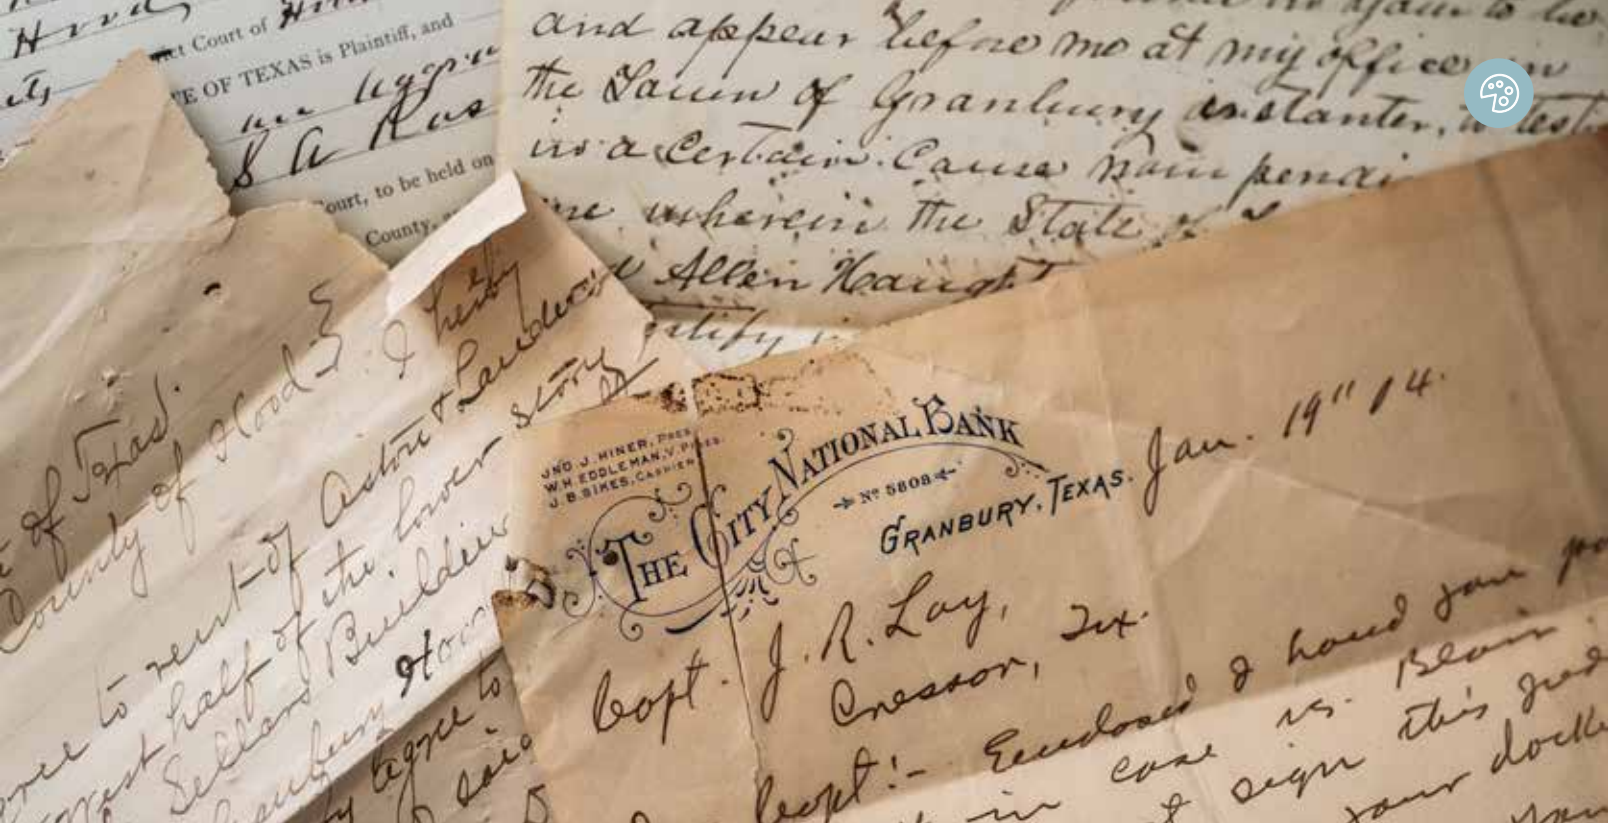 Hood
ct Court of
TE OF TEXAS is Plaintiff, and
S A Ros
ourt, to be held on
County,
and appear before me at my office in
the Town of Granbury instanter, to test
in a Certain Cause now pendi
me wherein the State of
Allen Haught
of Texas.
County of Hood } I her
to rent of Aston & Landers
west half of the lower story
Sellars Building
Granbury Hoo
agree to
said
JNO. J. HINER, PRES.
W.H. EDDLEMAN, V. PRES.
J. B. SIKES, CASHIER
THE CITY NATIONAL BANK
No 5808
GRANBURY, TEXAS. Jan. 19" 04.
Capt. J. R. Lay,
Cresson, Tex.
Capt:- Enclosed I hand you
in case vs. Blair
sign this
your docke